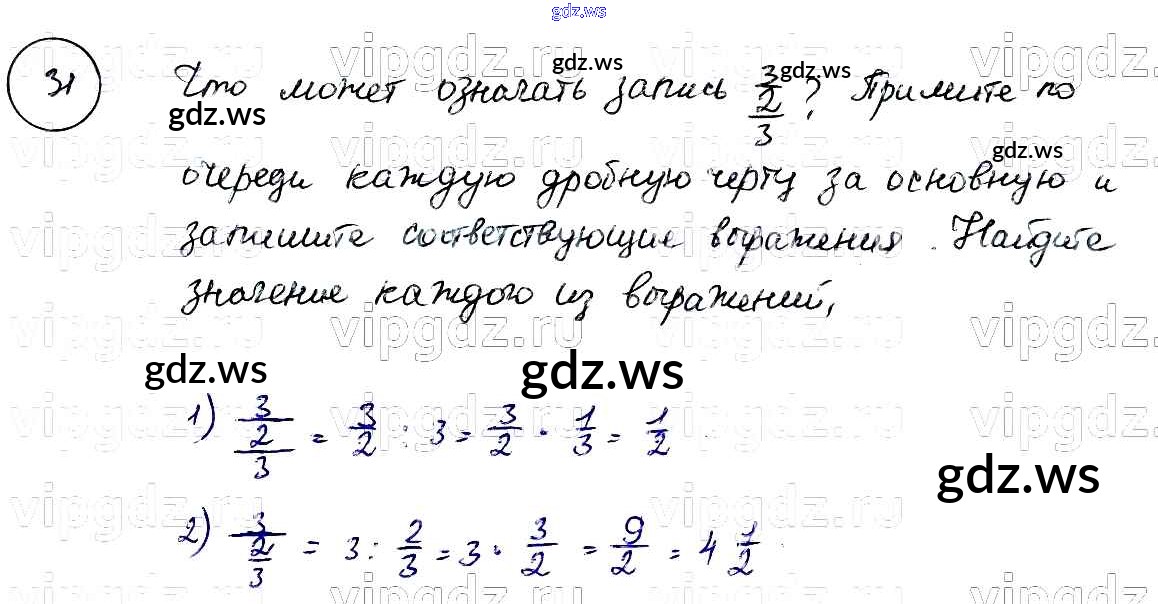 gdz.ws
31
Что может означать запись 3/2/3? Примите по
очереди каждую дробную черту за основную и
запишите соответствующие выражения. Найдите
значение каждого из выражений,
1) 3/2/3 = 3/2 : 3 = 3/2 · 1/3 = 1/2
2) 3/2/3 = 3 : 2/3 = 3 · 3/2 = 9/2 = 4 1/2
gdz.ws
gdz.ws
gdz.ws
gdz.ws
gdz.ws
gdz.ws
gdz.ws
vipgdz.ru
vipgdz.ru
vipgdz.ru
vipgdz.ru